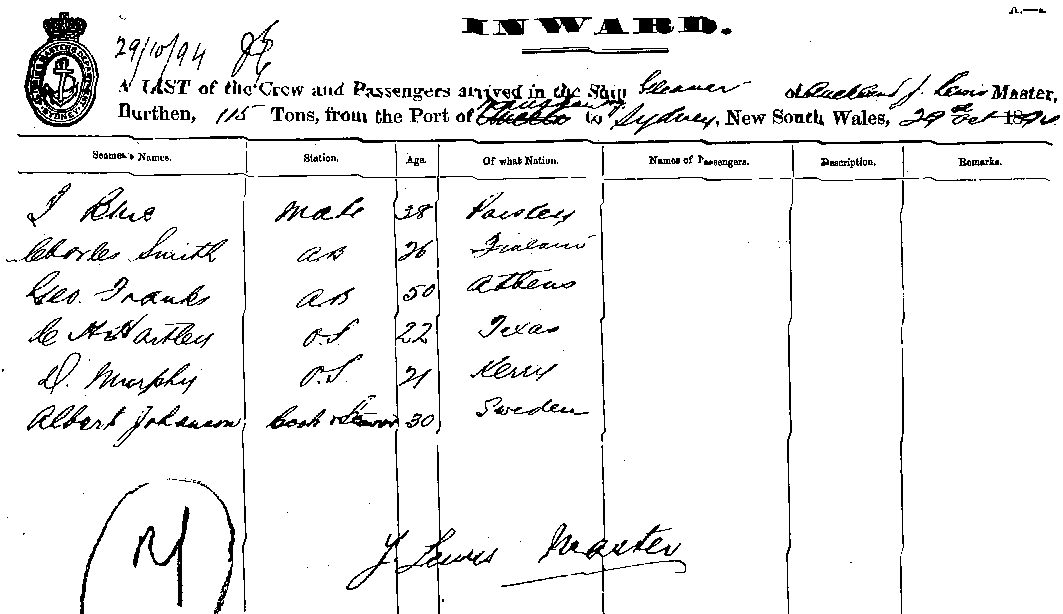 INWARD.
29/10/94
A LIST of the Crew and Passengers arrived in the Ship Gleaner of Auckland J. Lewis Master,
Burthen, 115 Tons, from the Port of to Sydney, New South Wales, 29th Oct 1894
Seamen's Names. Station. Age. Of what Nation. Names of Passengers. Description. Remarks.
J Blue Mate 38 Paisley
Charles Smith AB 26 Finland
Geo. Franks AB 50 Athens
C H Hartley O.S 22 Texas
D. Murphy O.S 21 Kerry
Albert Johanson Cook & Steward 30 Sweden
J Lewis Master